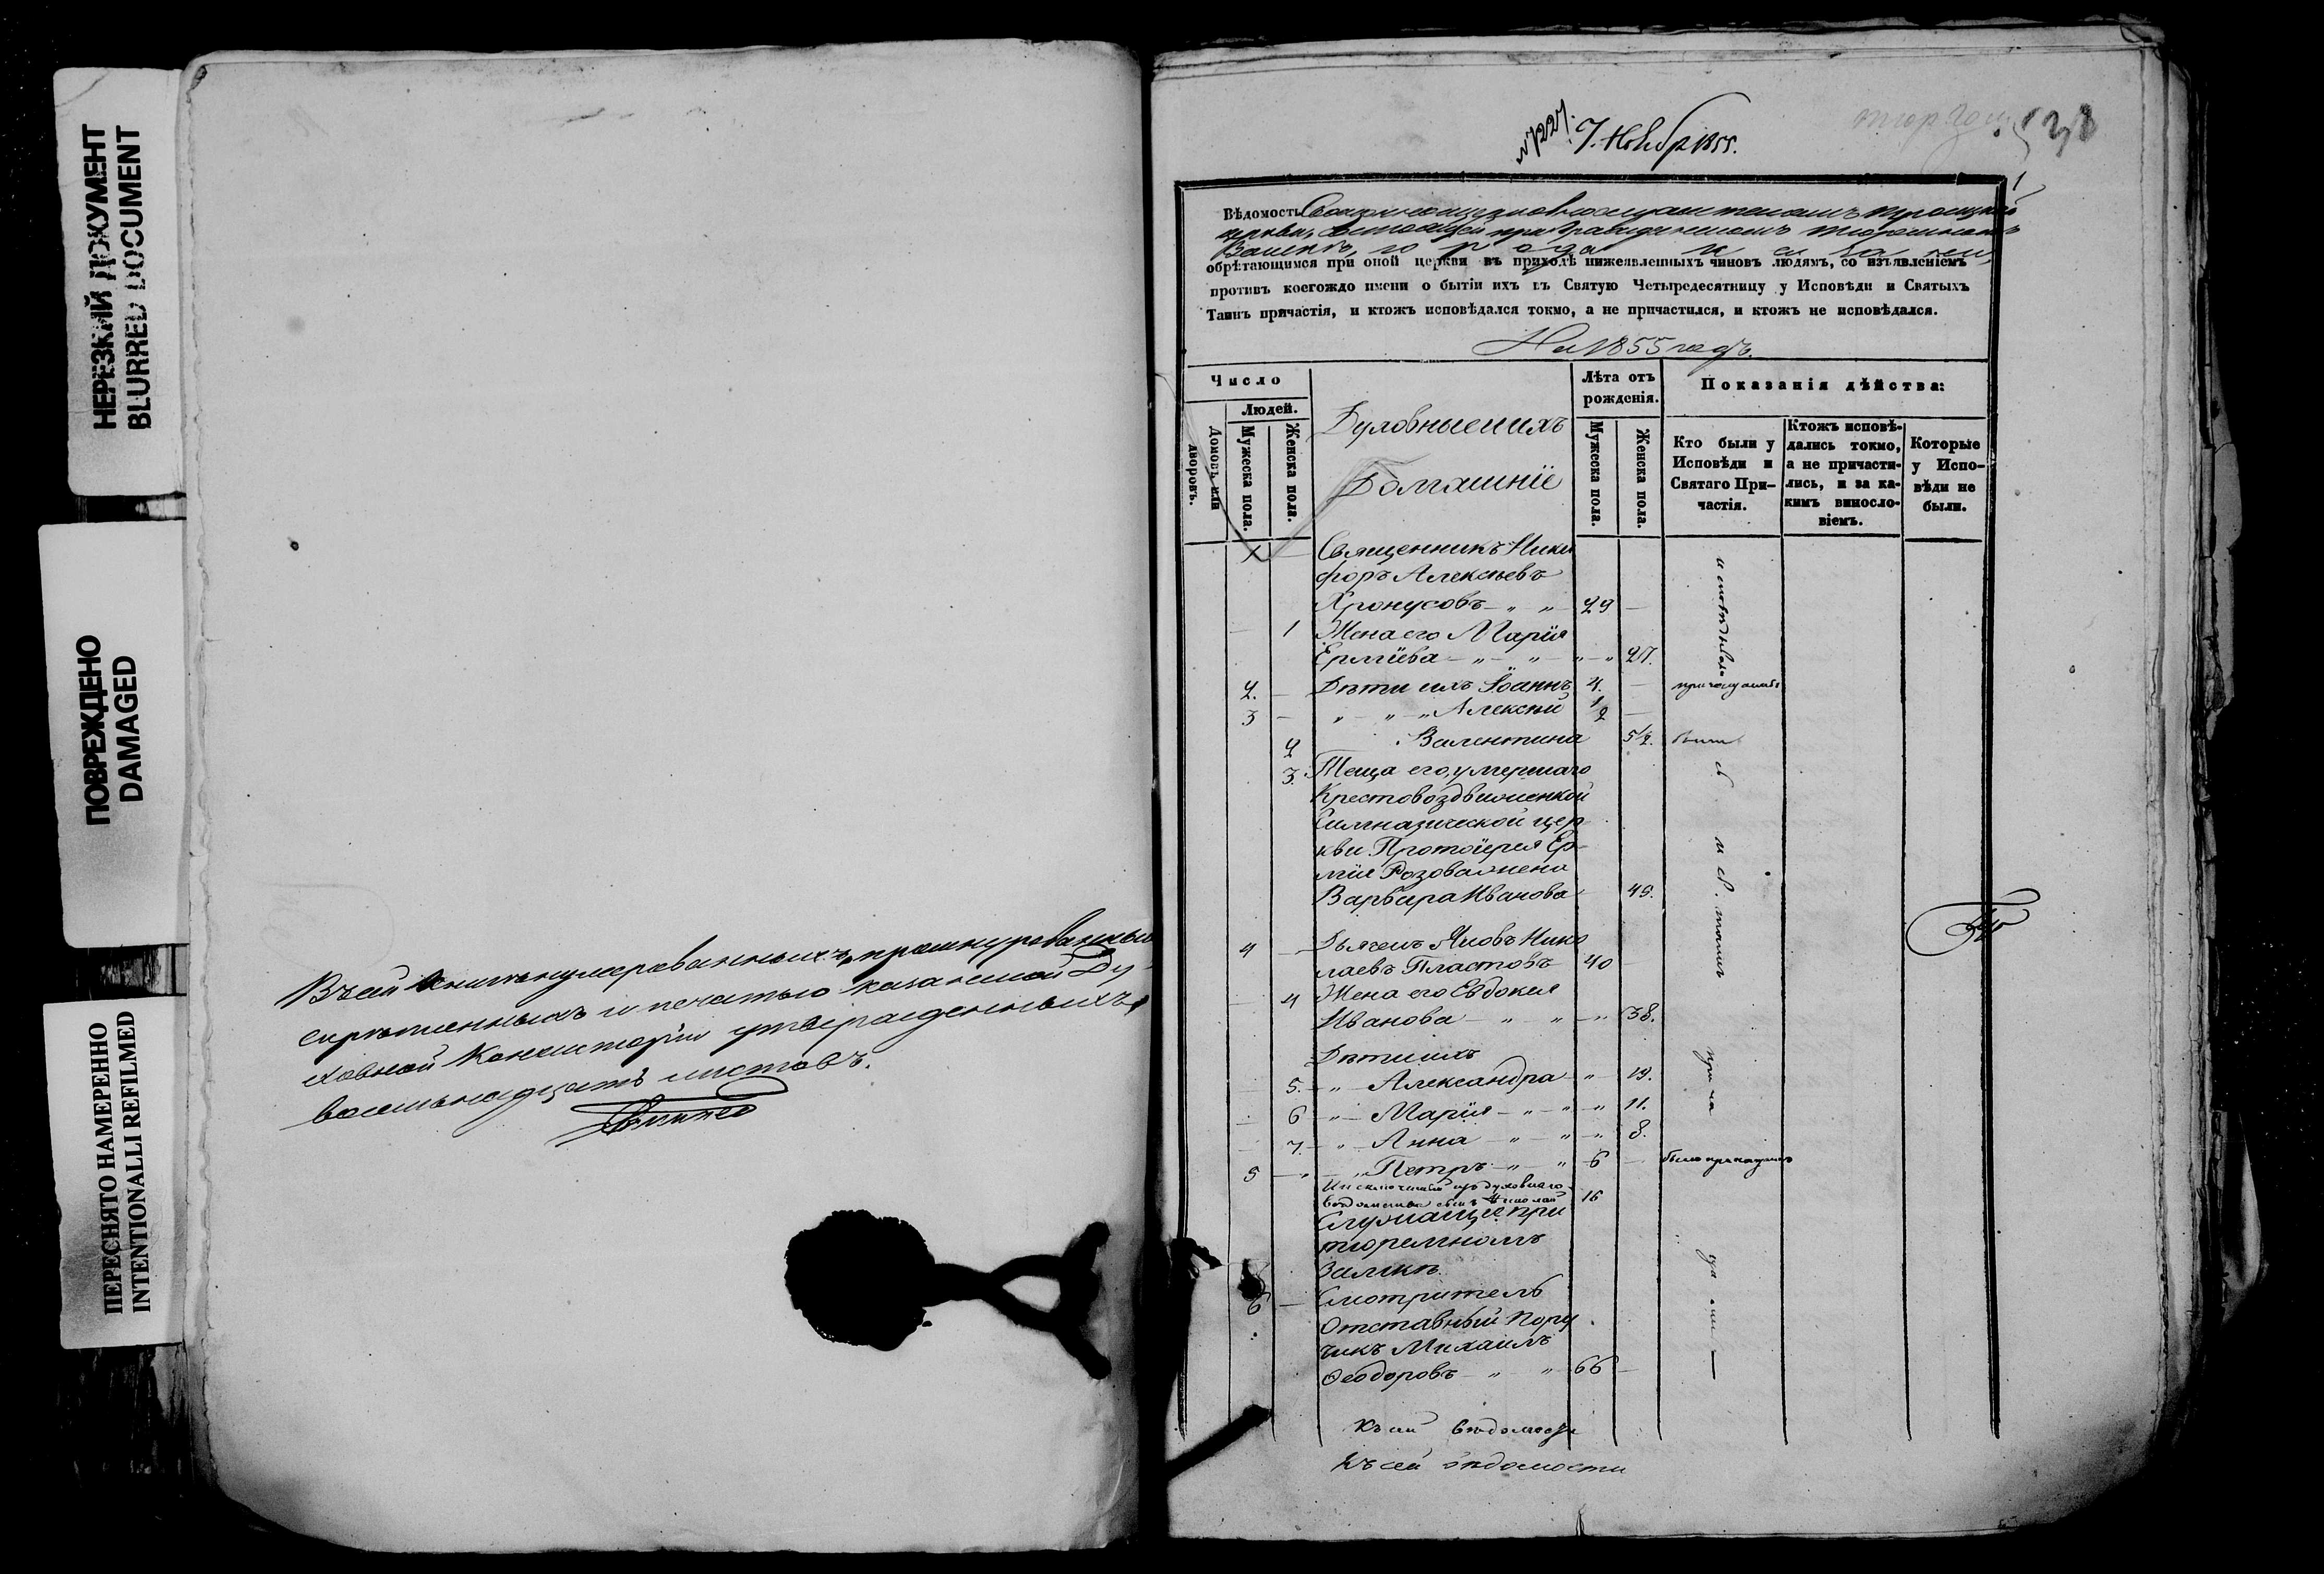 НЕРЕЗКИЙ ДОКУМЕНТ
BLURRED DOCUMENT
ПОВРЕЖДЕНО
DAMAGED
ПЕРЕСНЯТО НАМЕРЕННО
INTENTIONALLI REFILMED
Въ сей книгѣ нумерованныхъ, прошнурованныхъ
скрѣпленныхъ и печатью Казанской Ду-
ховной Консисторіи утвержденныхъ
восемьнадцать листовъ.
7. Ноября 1855.
1
Вѣдомость
церкви, состоящей при тюремномъ
Замкѣ, города Казани,
обрѣтающимся при оной церкви въ приходѣ нижеявленныхъ чиновъ людямъ, со изъявленіемъ
противъ коегождо имени о бытіи ихъ въ Святую Четыредесятницу у Исповѣди и Святыхъ
Таинъ причастія, и ктожъ исповѣдался токмо, а не причастился, и ктожъ не исповѣдался.
На 1855 годъ.
Число
Людей.
Домовъ или дворовъ.
Мужеска пола.
Женска пола.
Духовные и ихъ
Домашніе
Лѣта отъ рожденія.
Мужеска пола.
Женска пола.
Показанія дѣйства:
Кто были у Исповѣди и Святаго При-частія.
Ктожъ исповѣ-дались токмо, а не причасти-лись, и за ка-кимъ винословіемъ.
Которые у Испо-вѣди не были.
1 Священникъ Ники
форъ Алексѣевъ
Хронусовъ 29
1 Жена его Марія
Ерміева 27.
2. Дѣти ихъ Іоаннъ 4.
3 Алексѣй 1/2
2 Валентина 5 1/2.
3. Теща его, умершаго
Крестовоздвиженской
Гимназической цер-
кви Протоіерея Ер-
мія Розова жена
Варвара Иванова 49.
4 Дьячекъ Яковъ Нико
лаевъ Пластовъ 40
4 Жена его Евдокія
Иванова 38.
Дѣти ихъ
5. Александра 19.
6 Марія 11.
7. Анна 8.
5 Петръ 6
Исключенный изъ духовнаго
вѣдомства сынъ Николай 16
Служащіе при
тюремномъ
Замкѣ.
6 Смотритель
Отставный Пору
чикъ Михаилъ
Ѳеодоровъ 66
Къ сей вѣдомости
Къ сей вѣдомости